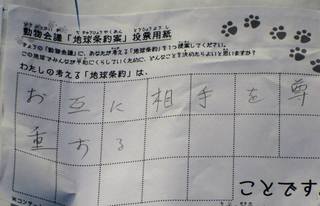 動物会議「地球条約案」投票用紙
きょうの「動物会議」に、あなたが考える「地球条約」を1つ提案してください。
この地球でみんなが平和にくらしていくために、どんなことを決めたらよいと思いますか?
わたしの考える「地球条約」は、
お互に相手を尊
重する
ことです